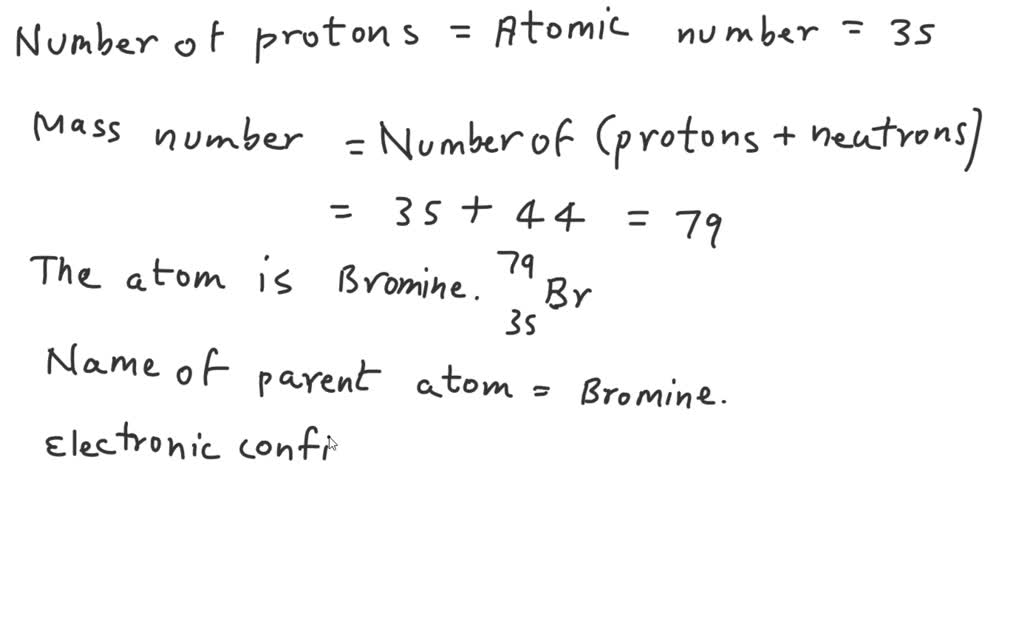 Number of protons = Atomic number = 35
Mass number = Number of (protons + neutrons)
= 35 + 44 = 79
The atom is Bromine. 79 35 Br
Name of parent atom = Bromine.
Electronic confi